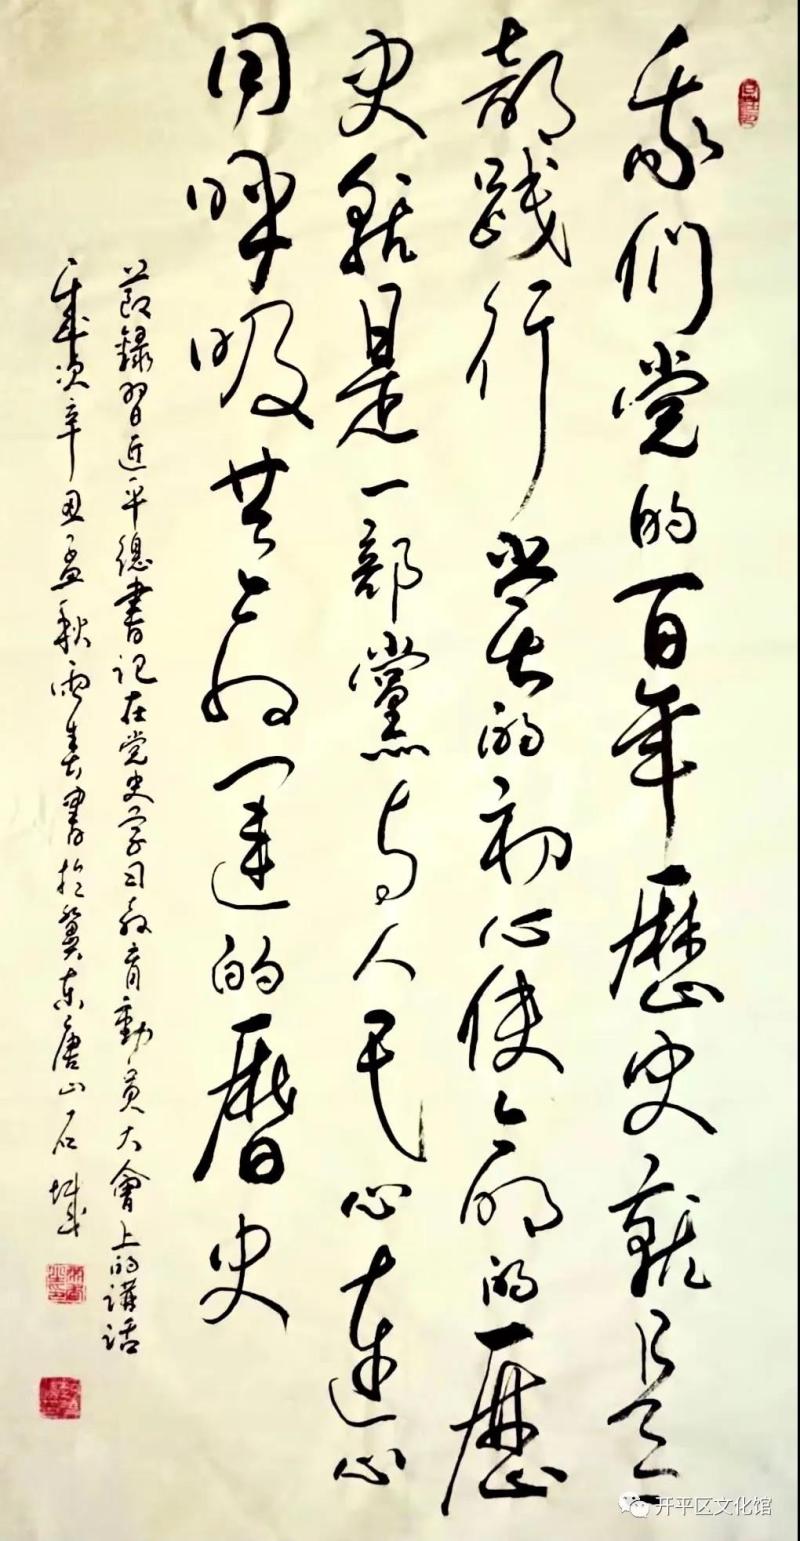 我们党的百年歷史就是一
部践行党的初心使命的歷
史就是一部黨与人民心连心
同呼吸共命运的曆史
节録習近平總書记在党史学习教育動員大會上的講话
歲次辛丑孟秋雨春書於冀东唐山石城
开平区文化馆